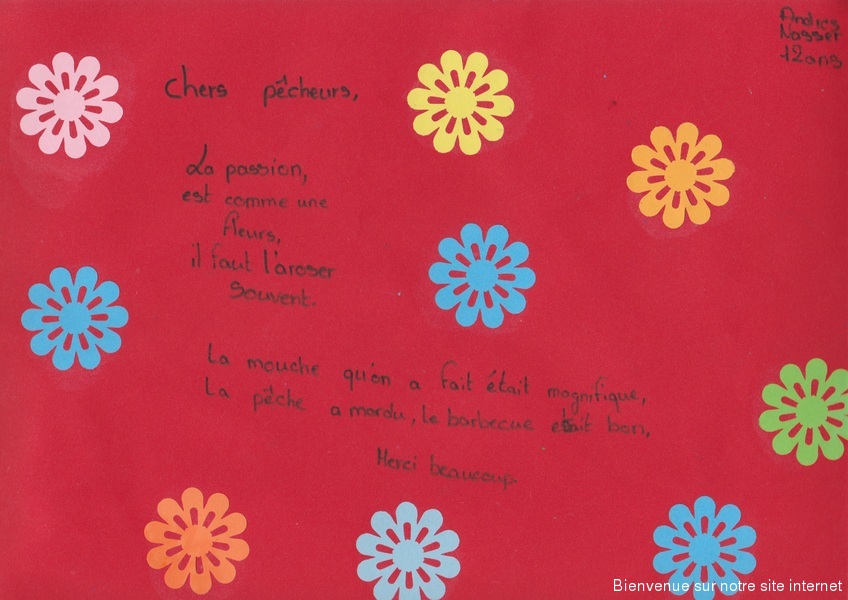 Andics
Nasser
12ans
Chers pêcheurs,
La passion,
est comme une
fleurs,
il faut l'aroser
Souvent.
La mouche qu'on a fait était magnifique,
La pêche a mordu, le barbecue était bon,
Merci beaucoup
Bienvenue sur notre site internet